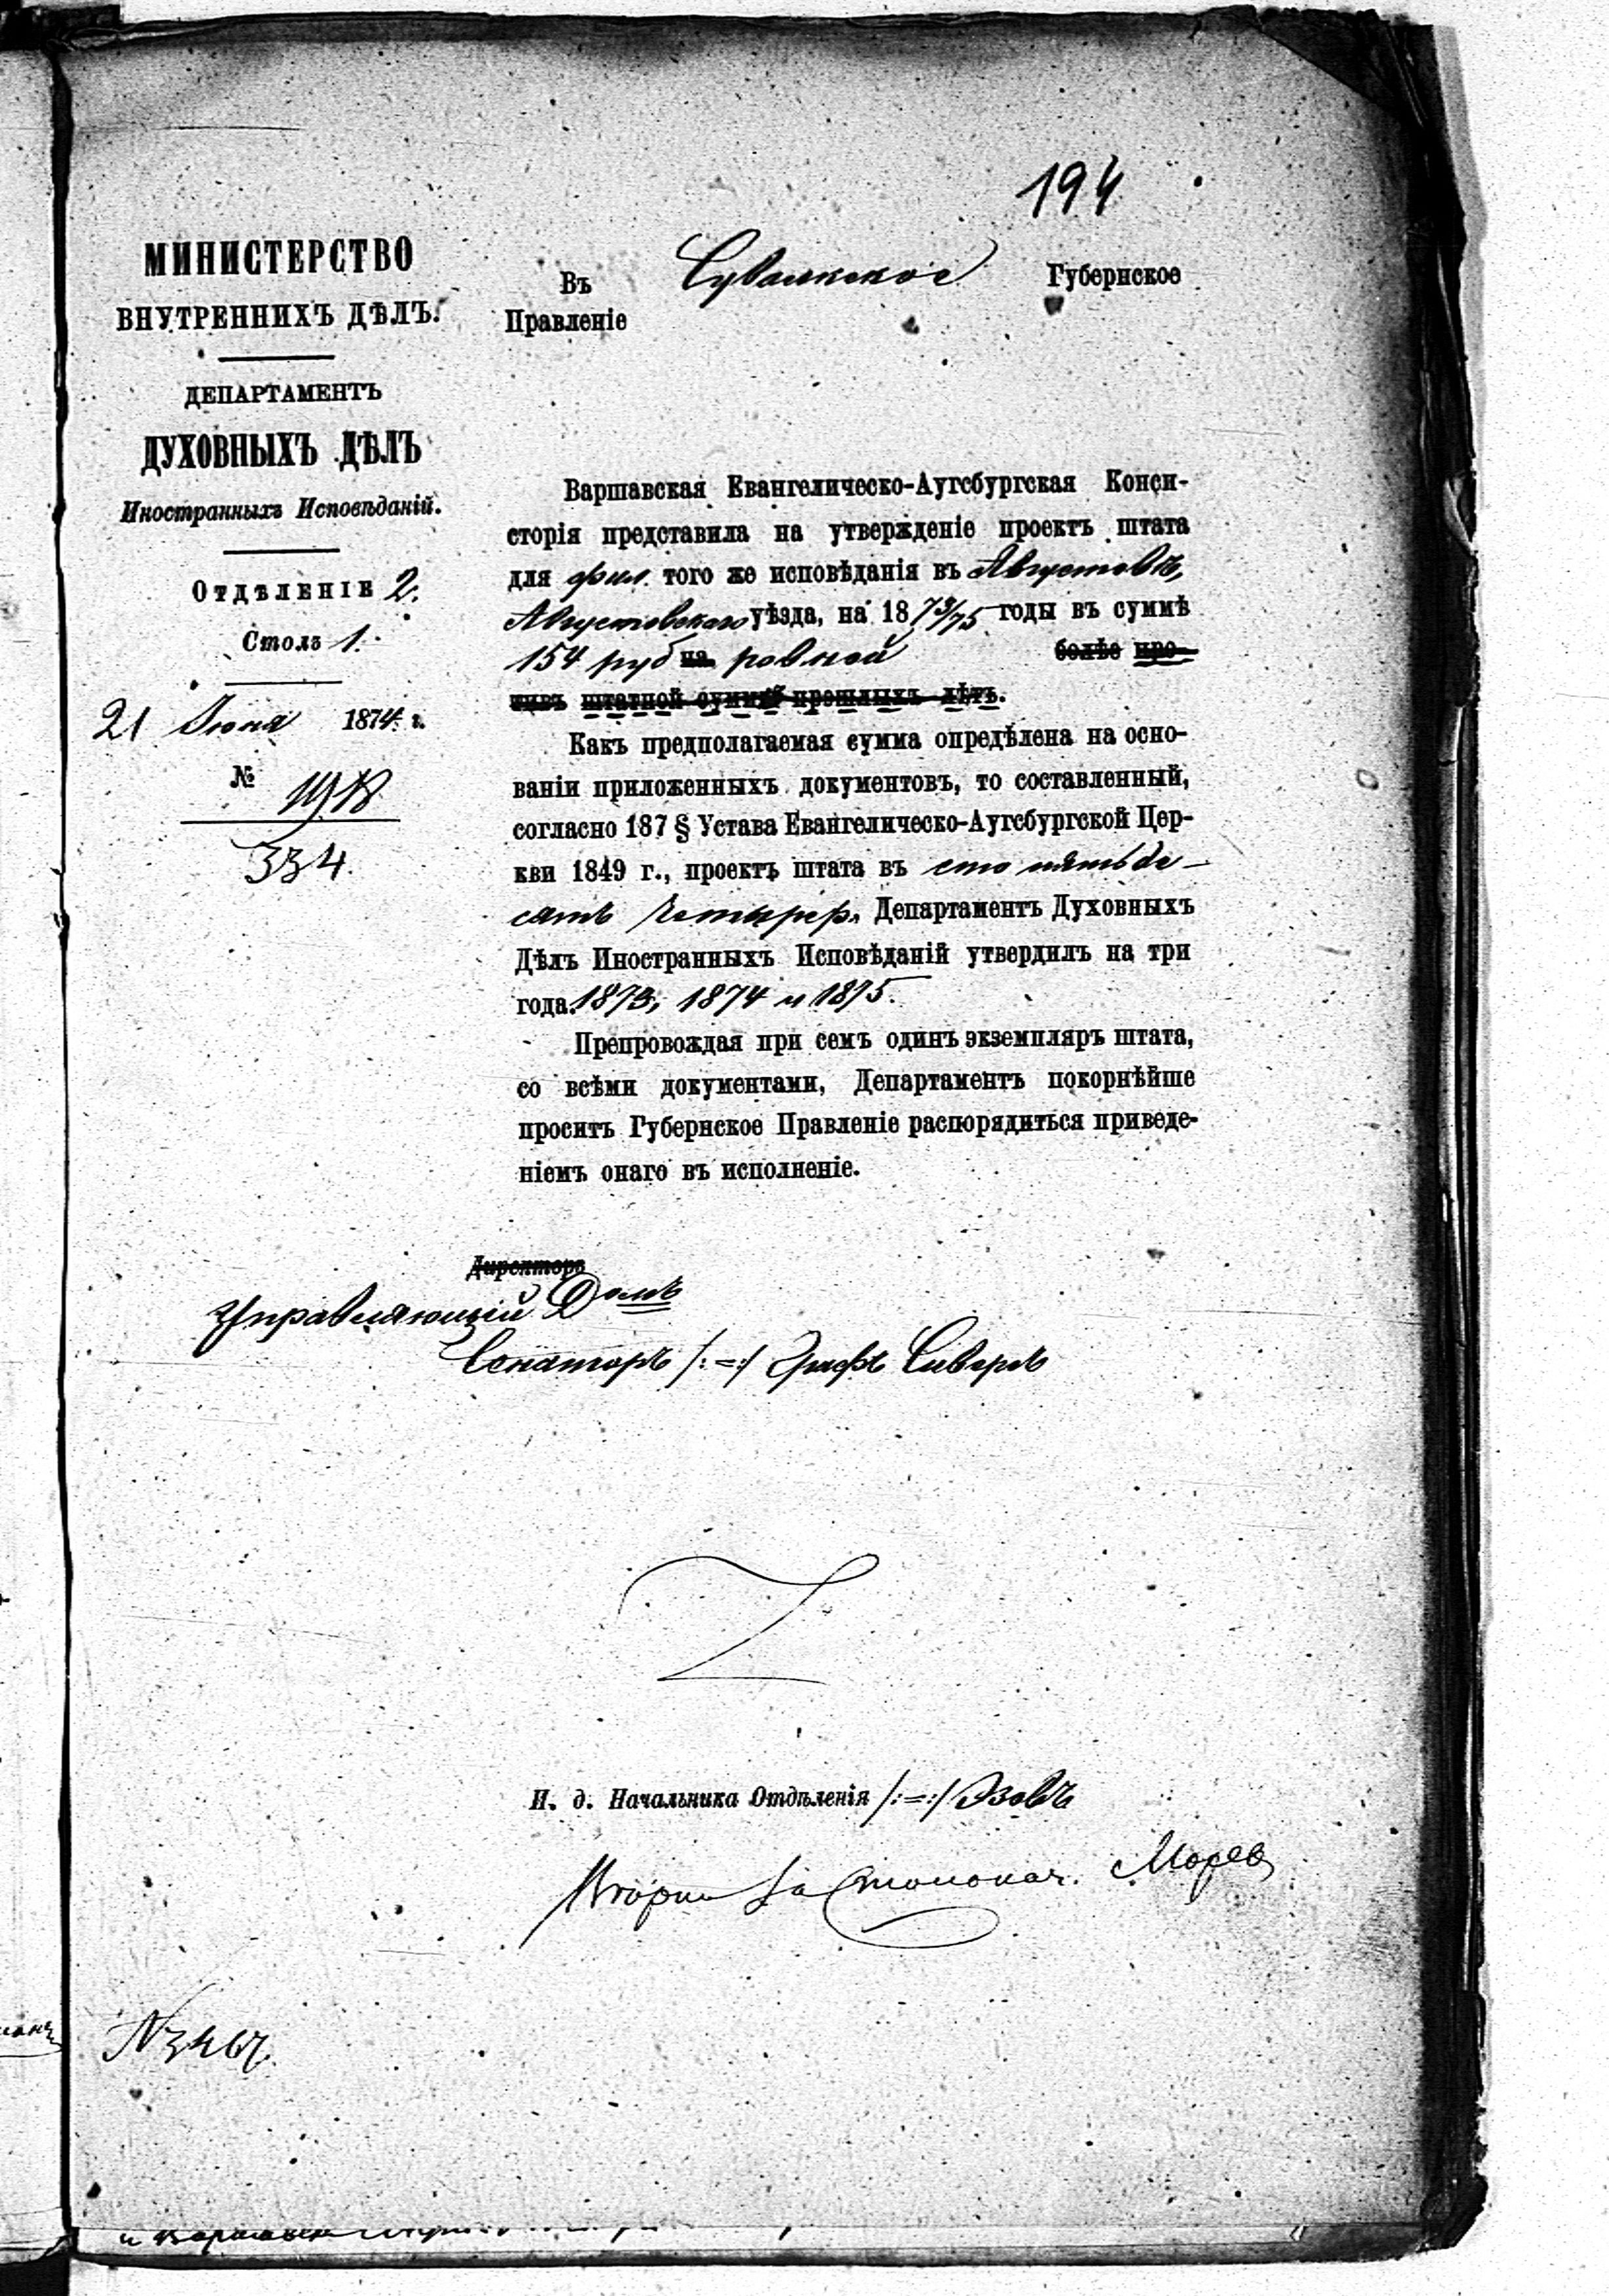 194
МИНИСТЕРСТВО
ВНУТРЕННИХЪ ДѢЛЪ.
ДЕПАРТАМЕНТЪ
ДУХОВНЫХЪ ДѢЛЪ
Иностранныхъ Исповѣданій.
ОТДѢЛЕНІЕ 2.
Столъ 1.
21 Іюня 1874 г.
№
334.
Въ Сувалкское Губернское
Правленіе
Варшавская Евангелическо-Аугсбургская Конси-
сторія представила на утвержденіе проектъ штата
для фил. того же исповѣданія въ Августовѣ,
Августовскаго уѣзда, на 1873/75 годы въ суммѣ
154 руб на ровной болѣе про-
тивъ штатной суммы прошлыхъ лѣтъ.
Какъ предполагаемая сумма опредѣлена на осно-
ваніи приложенныхъ документовъ, то составленный,
согласно 187 § Устава Евангелическо-Аугсбургской Цер-
кви 1849 г., проектъ штата въ сто пятьде-
сятъ четыре р. Департаментъ Духовныхъ
Дѣлъ Иностранныхъ Исповѣданій утвердилъ на три
года. 1873, 1874 и 1875.
Препровождая при семъ одинъ экземпляръ штата,
со всѣми документами, Департаментъ покорнѣйше
проситъ Губернское Правленіе распорядиться приведе-
ніемъ онаго въ исполненіе.
Директоръ
Управляющій Домъ
Сенаторъ /:=:/ Графъ Сиверсъ
И. д. Начальника Отдѣленія /:=:/ Эзовъ
За Столонач.